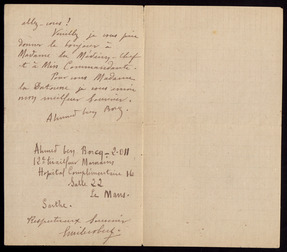 allez-vous!
Veuillez je vous prie
donner le bonjour à
Madame la Médecin-Chef
et à Mme Commandante.
Pour vous Madame
la Baronne je vous envoie
mon meilleur Souvenir.
Ahmed ben
Ahmed ben 2.011
12e Marocains
Hopital Complémentaire 16
Salle 22
Le Mans.
Sarthe.
Respectueux Souvenir